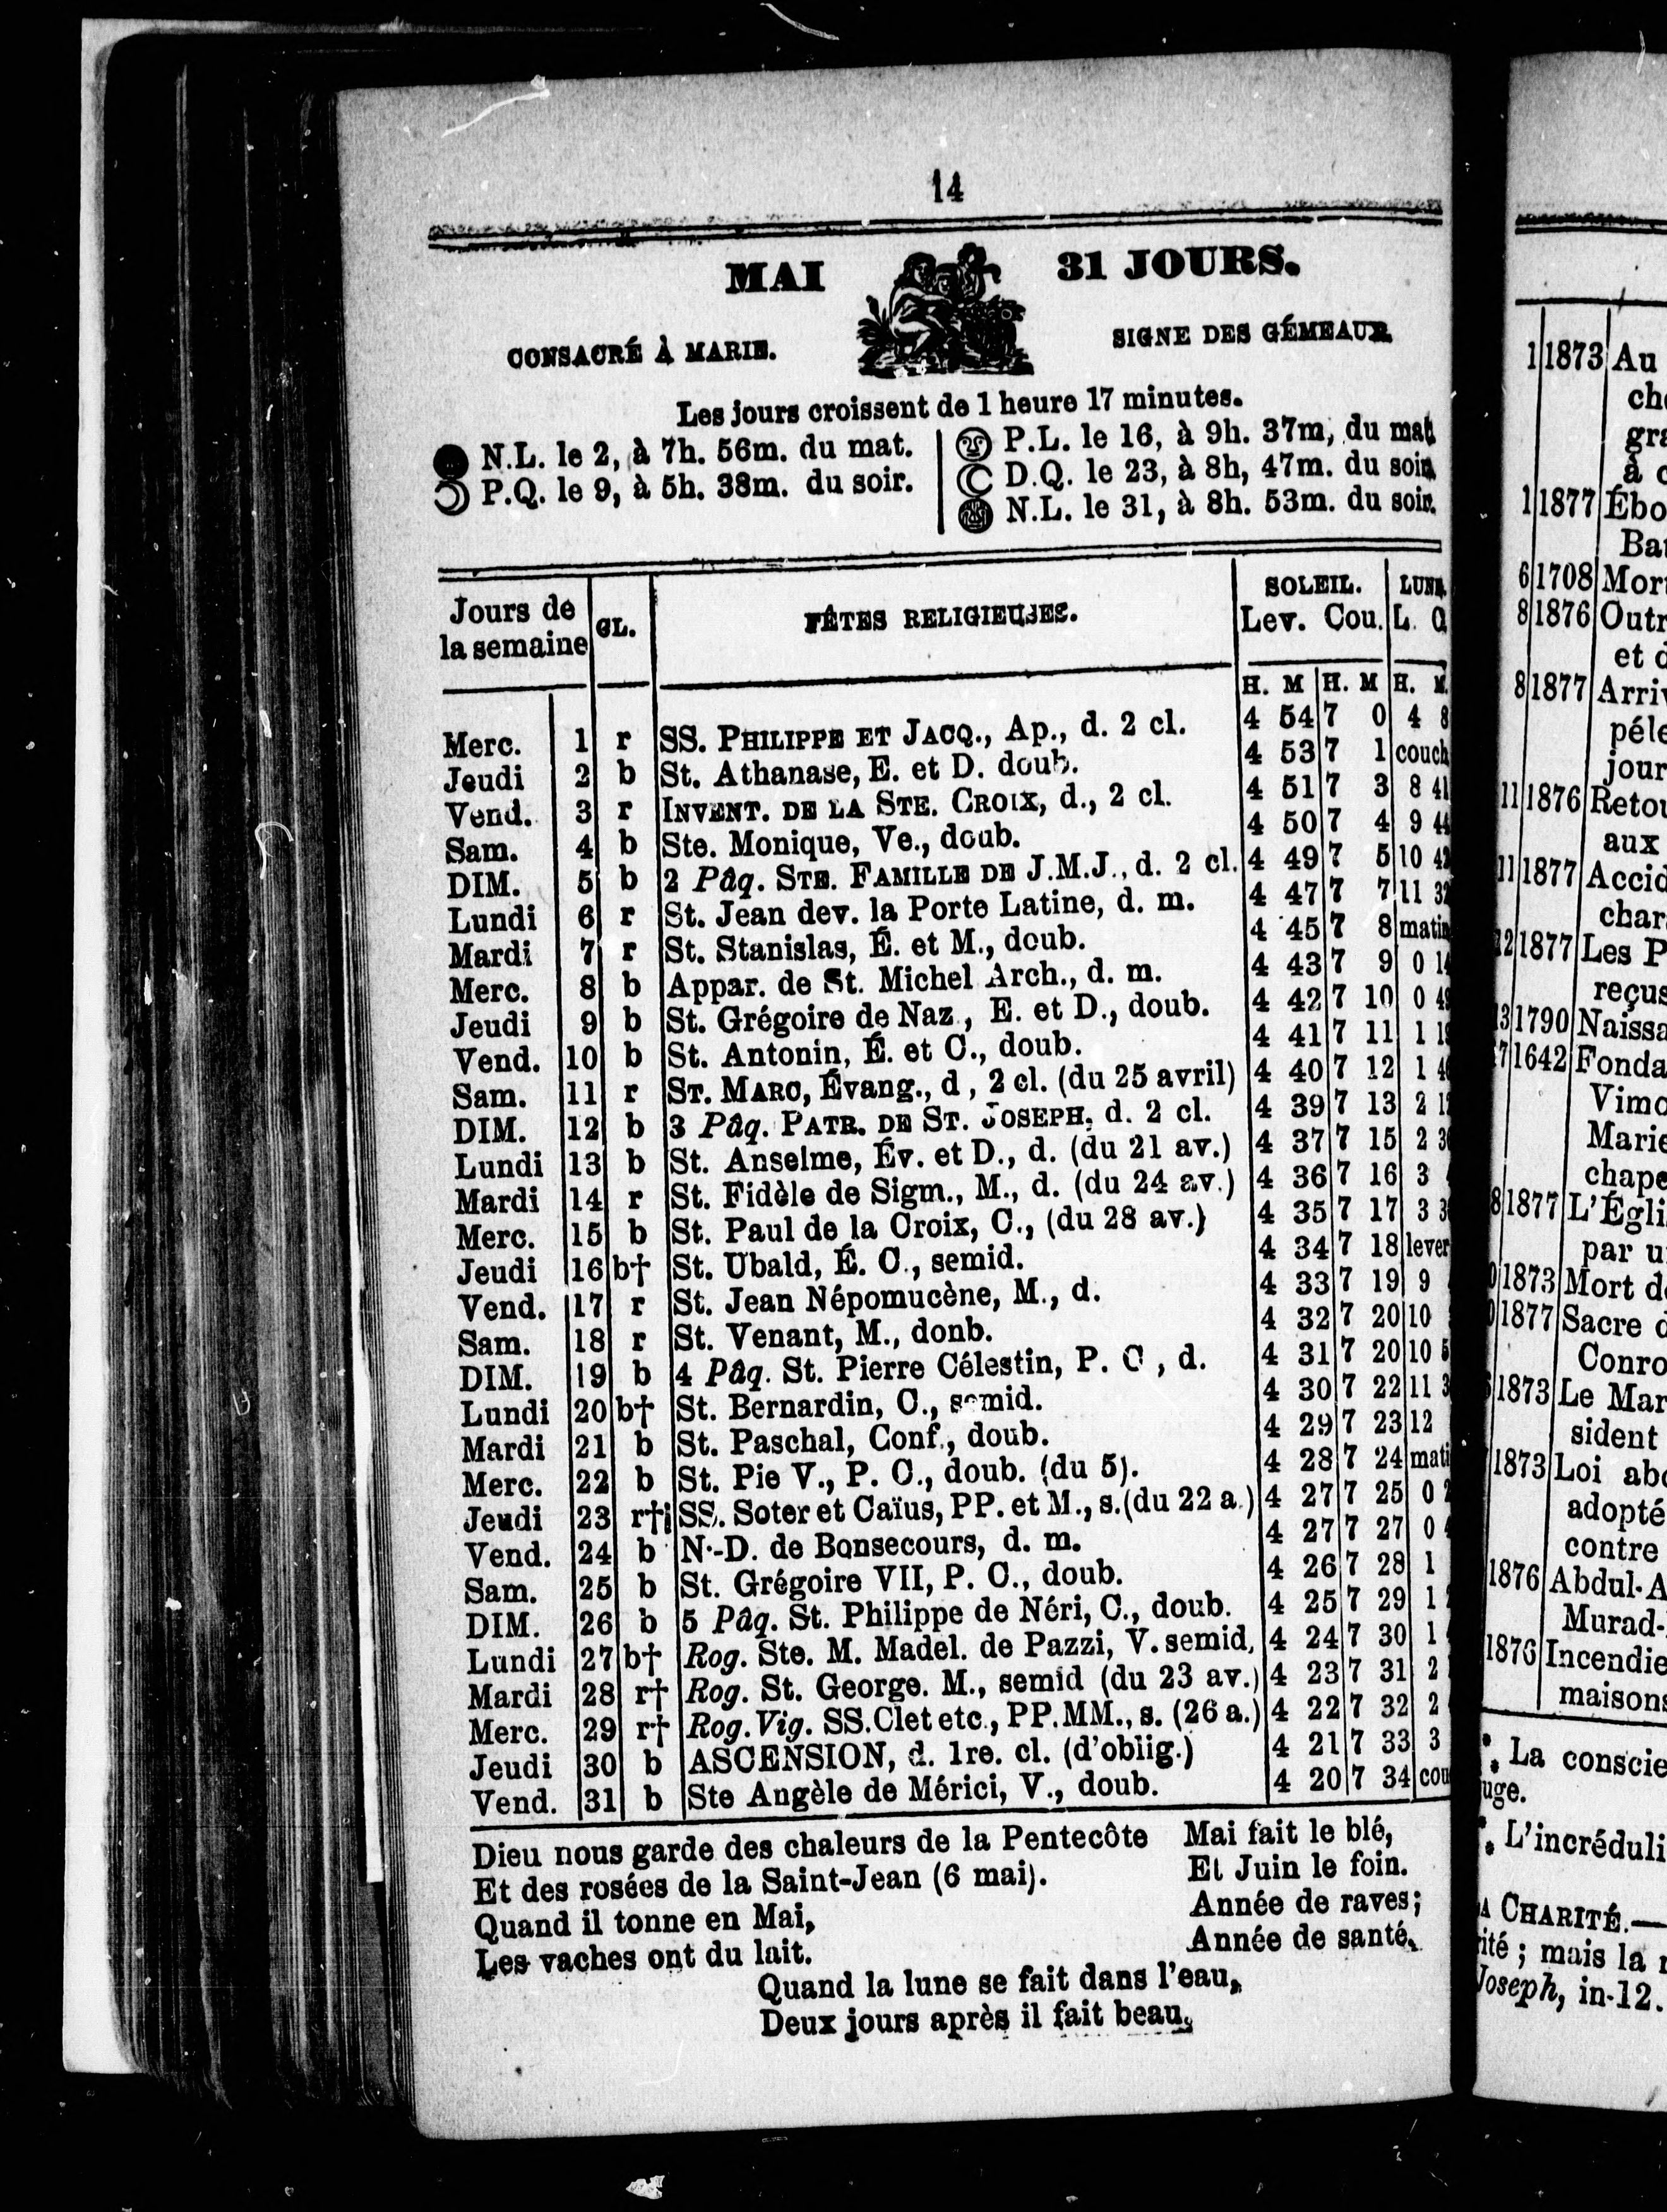 14
MAI 31 JOURS.
CONSACRÉ À MARIE. SIGNE DES GÉMEAUX.
Les jours croissent de 1 heure 17 minutes.
N.L. le 2, à 7h. 56m. du mat.
P.Q. le 9, à 5h. 38m. du soir.
P.L. le 16, à 9h. 37m, du mat
D.Q. le 23, à 8h, 47m. du soir
N.L. le 31, à 8h. 53m. du soir.
Jours de la semaine GL. FÊTES RELIGIEUSES. SOLEIL. Lev. Cou. LUNE. L. C
H. M H. M H. M.
Merc. 1 r SS. PHILIPPE ET JACQ., Ap., d. 2 cl. 4 54 7 0 4 8
Jeudi 2 b St. Athanase, E. et D. doub. 4 53 7 1 couch
Vend. 3 r INVENT. DE LA STE. CROIX, d., 2 cl. 4 51 7 3 8 41
Sam. 4 b Ste. Monique, Ve., doub. 4 50 7 4 9 44
DIM. 5 b 2 Pâq. STE. FAMILLE DE J.M.J., d. 2 cl. 4 49 7 5 10 42
Lundi 6 r St. Jean dev. la Porte Latine, d. m. 4 47 7 7 11 32
Mardi 7 r St. Stanislas, É. et M., doub. 4 45 7 8 matin
Merc. 8 b Appar. de St. Michel Arch., d. m. 4 43 7 9 0 14
Jeudi 9 b St. Grégoire de Naz., E. et D., doub. 4 42 7 10 0 49
Vend. 10 b St. Antonin, É. et C., doub. 4 41 7 11 1 19
Sam. 11 r ST. MARC, Évang., d, 2 cl. (du 25 avril) 4 40 7 12 1 46
DIM. 12 b 3 Pâq. PATR. DE ST. JOSEPH, d. 2 cl. 4 39 7 13 2 12
Lundi 13 b St. Anselme, Év. et D., d. (du 21 av.) 4 37 7 15 2 36
Mardi 14 r St. Fidèle de Sigm., M., d. (du 24 av.) 4 36 7 16 3
Merc. 15 b St. Paul de la Croix, C., (du 28 av.) 4 35 7 17 3 3
Jeudi 16 b† St. Ubald, É. C., semid. 4 34 7 18 lever
Vend. 17 r St. Jean Népomucène, M., d. 4 33 7 19 9
Sam. 18 r St. Venant, M., donb. 4 32 7 20 10
DIM. 19 b 4 Pâq. St. Pierre Célestin, P. C, d. 4 31 7 20 10 5
Lundi 20 b† St. Bernardin, C., semid. 4 30 7 22 11 3
Mardi 21 b St. Paschal, Conf., doub. 4 29 7 23 12
Merc. 22 b St. Pie V., P. C., doub. (du 5). 4 28 7 24 mati
Jeudi 23 r† SS. Soter et Caïus, PP. et M., s. (du 22 a.) 4 27 7 25 0 2
Vend. 24 b N.-D. de Bonsecours, d. m. 4 27 7 27 0 4
Sam. 25 b St. Grégoire VII, P. C., doub. 4 26 7 28 1
DIM. 26 b 5 Pâq. St. Philippe de Néri, C., doub. 4 25 7 29 1
Lundi 27 b† Rog. Ste. M. Madel. de Pazzi, V. semid, 4 24 7 30 1
Mardi 28 r† Rog. St. George. M., semid (du 23 av.) 4 23 7 31 2
Merc. 29 r† Rog. Vig. SS. Clet etc., PP. MM., s. (26 a.) 4 22 7 32 2
Jeudi 30 b ASCENSION, d. 1re. cl. (d'oblig.) 4 21 7 33 3
Vend. 31 b Ste Angèle de Mérici, V., doub. 4 20 7 34 cou
Dieu nous garde des chaleurs de la Pentecôte
Et des rosées de la Saint-Jean (6 mai).
Quand il tonne en Mai,
Les vaches ont du lait.
Mai fait le blé,
Et Juin le foin.
Année de raves;
Année de santé.
Quand la lune se fait dans l'eau,
Deux jours après il fait beau.
1 1873 Au
ch
gr
à
1 1877 Ébo
Ba
6 1708 Mor
8 1876 Outr
et d
8 1877 Arriv
péle
jour
11 1876 Retou
aux
11 1877 Accid
char
12 1877 Les P
reçus
13 1790 Naissa
17 1642 Fonda
Vimo
Marie
chape
8 1877 L'Égli
par u
0 1873 Mort d
0 1877 Sacre d
Conro
1873 Le Mar
sident
1873 Loi abo
adopté
contre
1876 Abdul-A
Murad-
1876 Incendie
maisons
La conscie
uge.
L'incréduli
A CHARITÉ.—
ité ; mais la
Joseph, in-12.